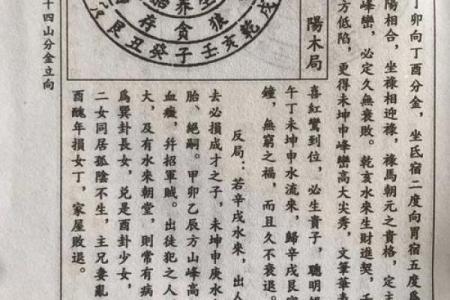 丁卯向丁酉分金，坐氐宿二度向胃宿五度爲
陽相合，坐祿相迎祿，祿馬朝元之貴格，定主
峰巒，必定久無衰敗。乾亥水來生財進契，壬
方低陷，更得未坤申峰巒高大尖秀，文筆華
喜紅鸞到位，必生貴子，聰明
午丁未坤申水流來，歸辛戌艮
鐘，無窮之福，而且久不衰退。
反局：若辛戌水來，出人
去必損成才之子，未坤申庚水
胎、絕嗣。甲卯乙辰方山峰高
血癥，并招軍賊。出徒犯之人
大，及有水來朝堂，則常有病
爲巽卦長女，兌是酉卦少女，
二女同居孤陰不生，主兄妻亂
酉醜年損女丁，家屋敗退。
陽木局
乾亥壬子癸丑艮
養生
貪狼
存
十四山分金立向